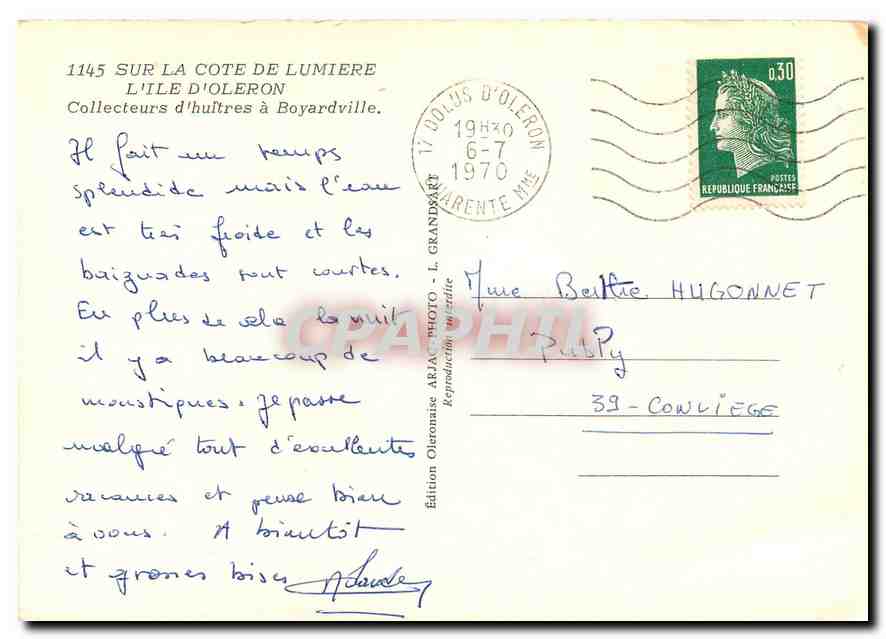 1145 SUR LA COTE DE LUMIERE
L'ILE D'OLERON
Collecteurs d'huîtres à Boyardville.
Il fait un temps
splendide mais l'eau
est très froide et les
baignades sont courtes.
En plus de cela la nuit
il y a beaucoup de
moustiques. Je passe
malgré tout d'excellentes
vacances et pense bien
à vous. A bientôt
et grosses bises
Édition Oleronaise ARJAC-PHOTO - L. GRANDSART
Reproduction interdite
17 DOLUS D'OLERON
19H30
6-7
1970
CHARENTE MME
0,30
POSTES
REPUBLIQUE FRANÇAISE
Mme Berthe HUGONNET
Publy
39-CONLIEGE
CPAPHIL